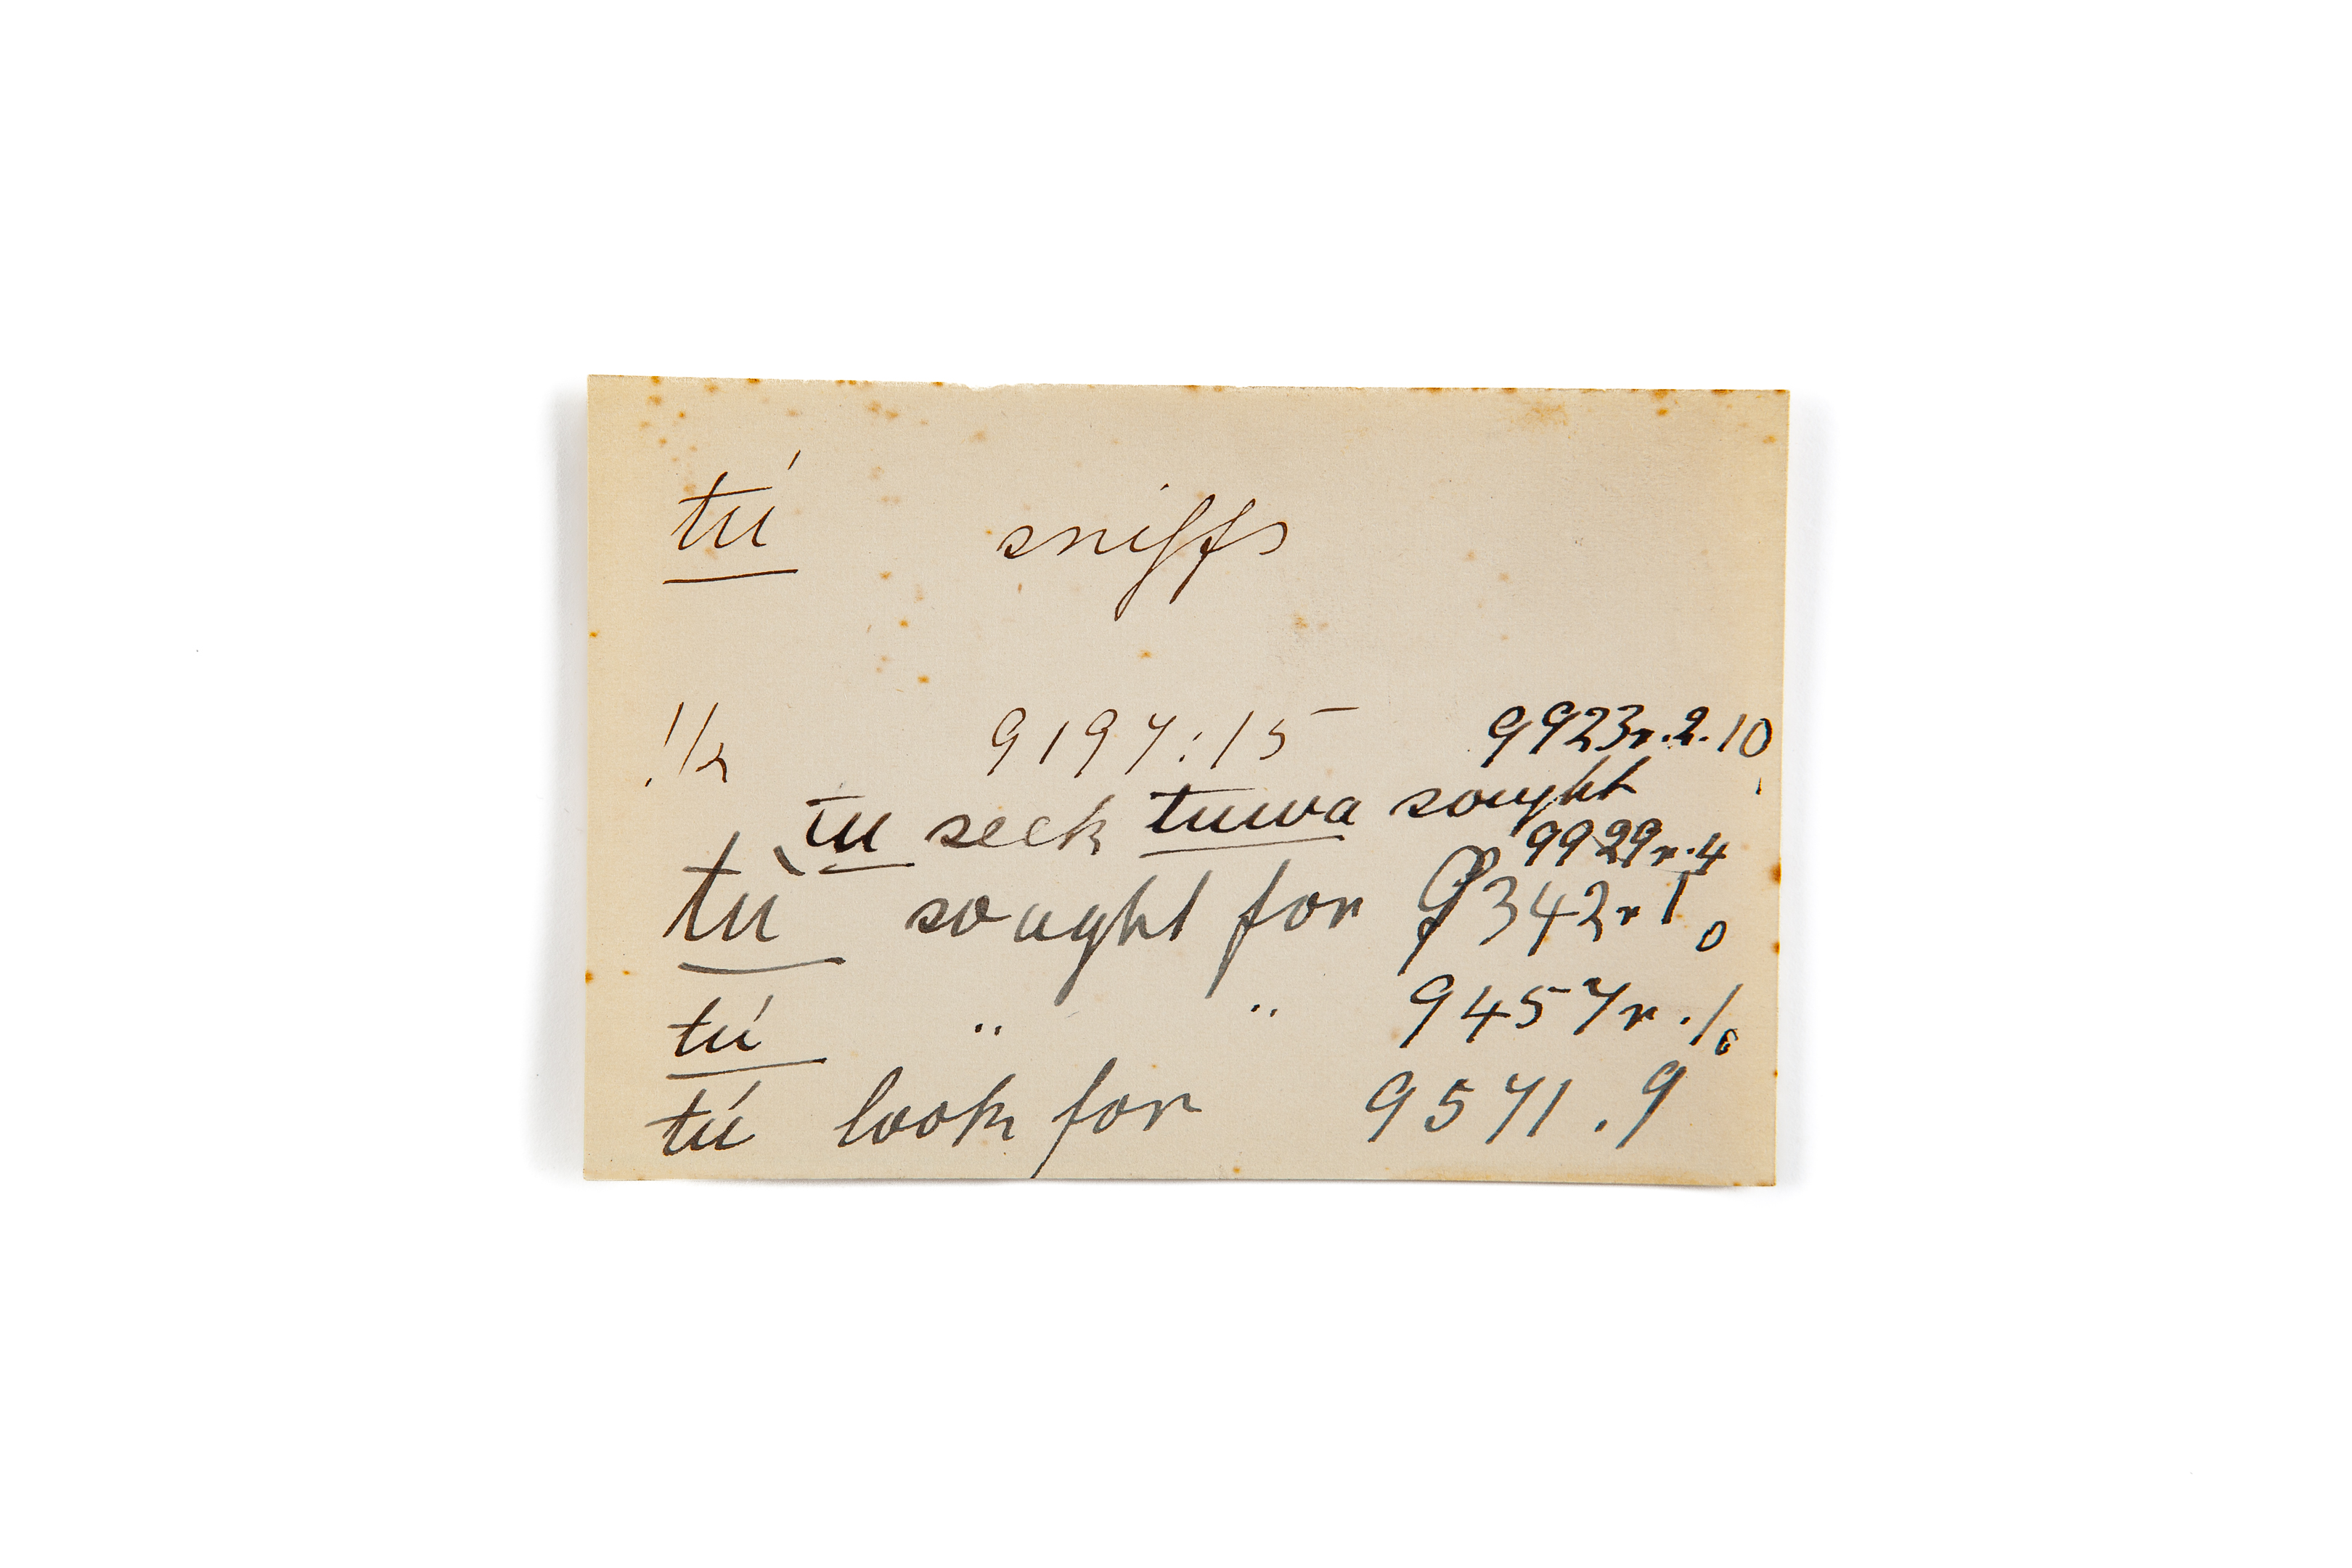 tú sniffs
!/2 9197:15 9923r.2.10
tu seek tuwa sought
9929r.4
tù sought for 9342r 10
tú " " 9457r.16
tú look for 9571.9